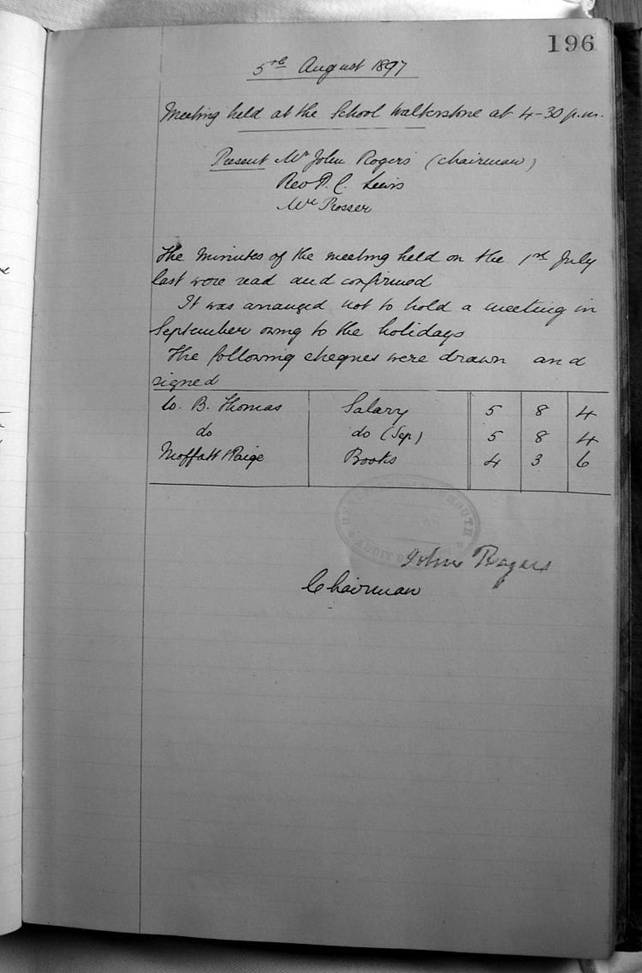 196
5th August 1897
Meeting held at the School Walterstone at 4-30 p.m.
Present Mr John Rogers (Chairman)
Rev P. C. Lewis
Mr Prosser
The minutes of the meeting held on the 1st July
last were read and confirmed
It was arranged not to hold a meeting in
September owing to the holidays
The following cheques were drawn and
signed
W. B. Thomas Salary 5 8 4
do do (Sep) 5 8 4
Moffatt & Paige Books 4 3 6
John Rogers
Chairman